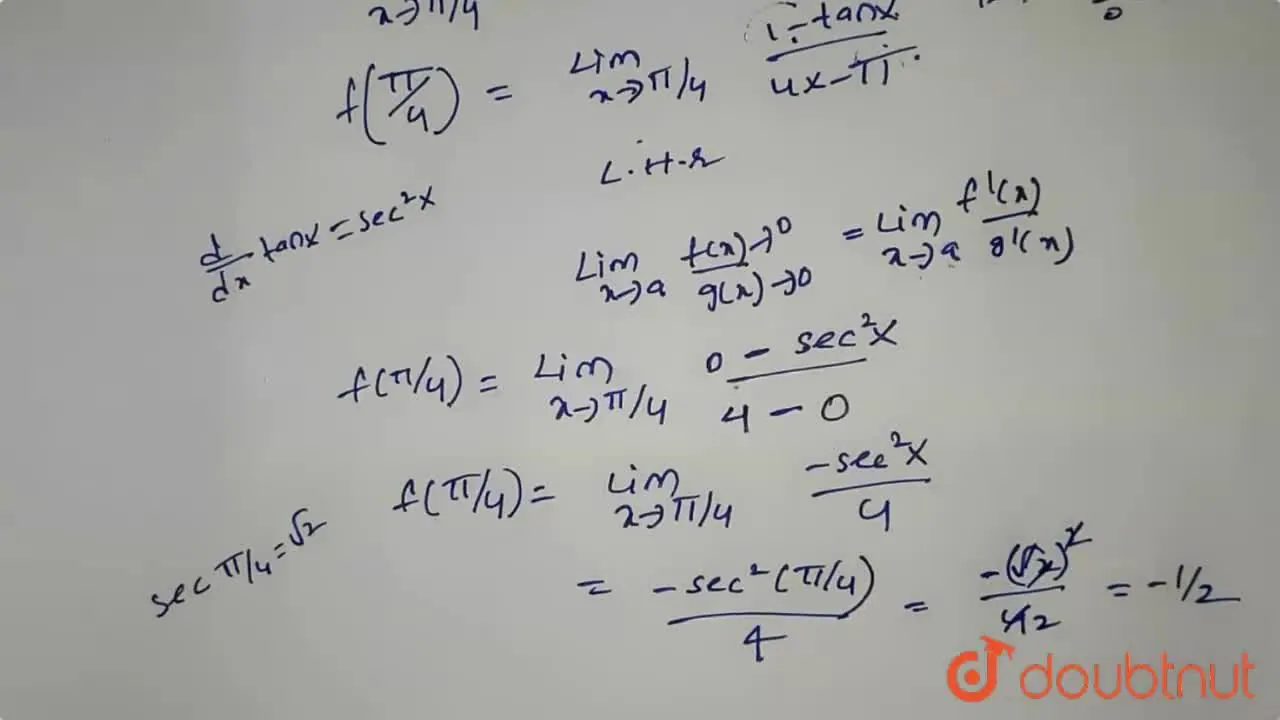 x→π/4
f(π/4) = Lim x→π/4 1-tanx / 4x-π
L.H.R
d/dx tanx = sec²x
Lim x→a f(x)→0 / g(x)→0 = Lim x→a f'(x) / g'(x)
f(π/4) = Lim x→π/4 0 - sec²x / 4 - 0
f(π/4) = Lim x→π/4 -sec²x / 4
sec π/4 = √2
= -sec²(π/4) / 4 = -(√2)² / 4 2 = -1/2
doubtnut